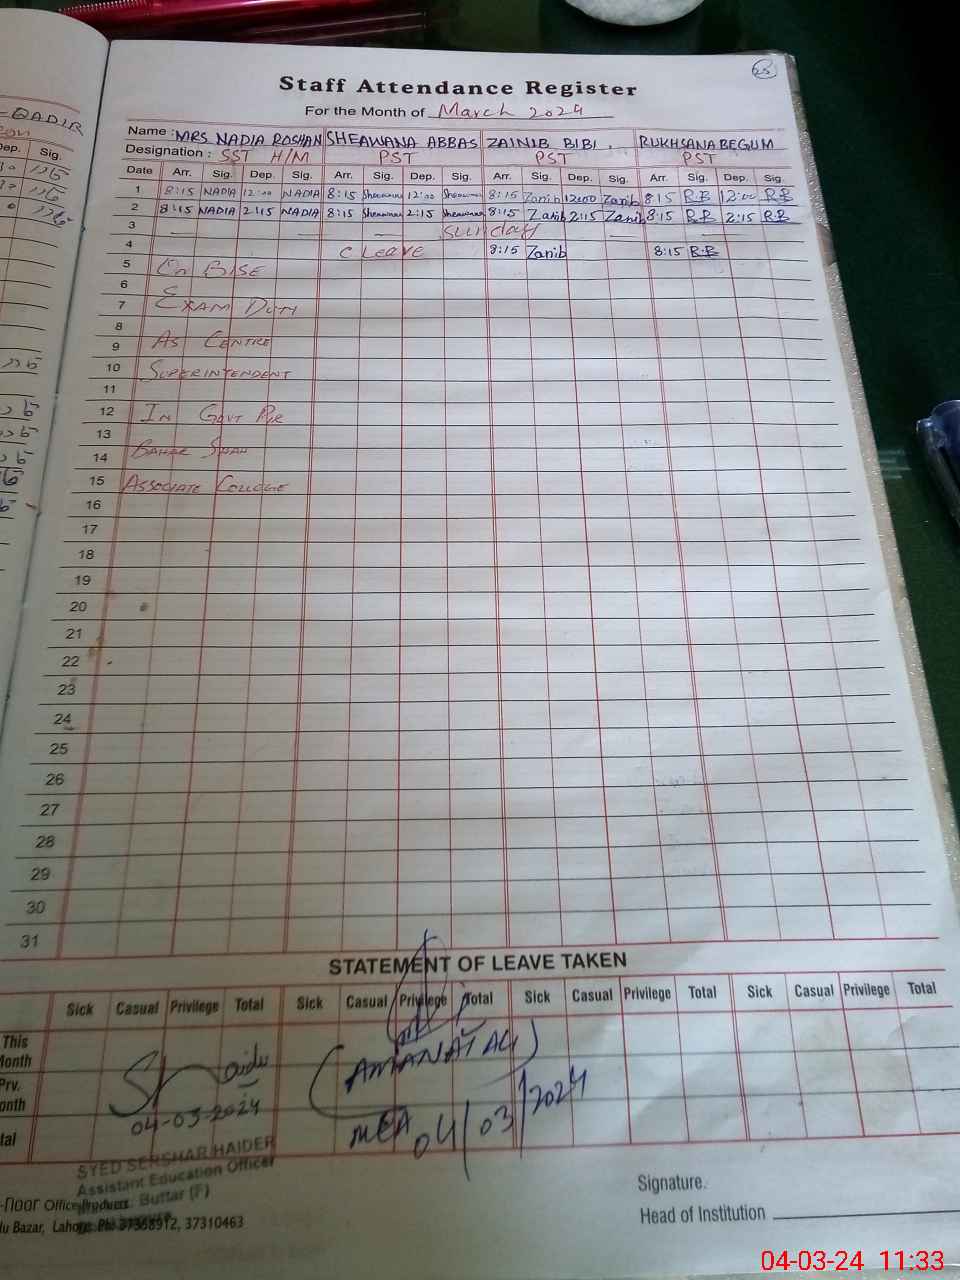 25
Staff Attendance Register
For the Month of March 2024
Name : MRS NADIA ROSHAN SHEAWANA ABBAS ZAINIB BIBI . RUKHSANA BEGUM
Designation : SST H/M PST PST PST
Date Arr. Sig. Dep. Sig. Arr. Sig. Dep. Sig. Arr. Sig. Dep. Sig. Arr. Sig. Dep. Sig.
1 8:15 NADIA 12:00 NADIA 8:15 Sheawana 12:00 Sheawana 8:15 Zanib 12:00 Zanib 8:15 R.B 12:00 R.B
2 8:15 NADIA 2:15 NADIA 8:15 Sheawana 2:15 Sheawana 8:15 Zanib 2:15 Zanib 8:15 R.B 2:15 R.B
3 Sunday
4 C Leave 8:15 Zanib 8:15 R.B
5 On BISE
6
7 EXAM DUTY
8
9 AS CENTRE
10 SUPERINTENDENT
11
12 IN GOVT PIR
13
14 BAHAR SHAH
15 ASSOCIATE COLLEGE
16
17
18
19
20
21
22
23
24
25
26
27
28
29
30
31
STATEMENT OF LEAVE TAKEN
Sick Casual Privilege Total Sick Casual Privilege Total Sick Casual Privilege Total Sick Casual Privilege Total
This Month
(AMANAT ALI)
04-03-2024
MEA 04/03/2024
SYED SERSHAR HAIDER
Assistant Education Officer
Buttar (F)
Office Products
Bazar, Lahore. Ph: 37358912, 37310463
Signature.
Head of Institution
-QADIR
Dep. Sig.
04-03-24 11:33